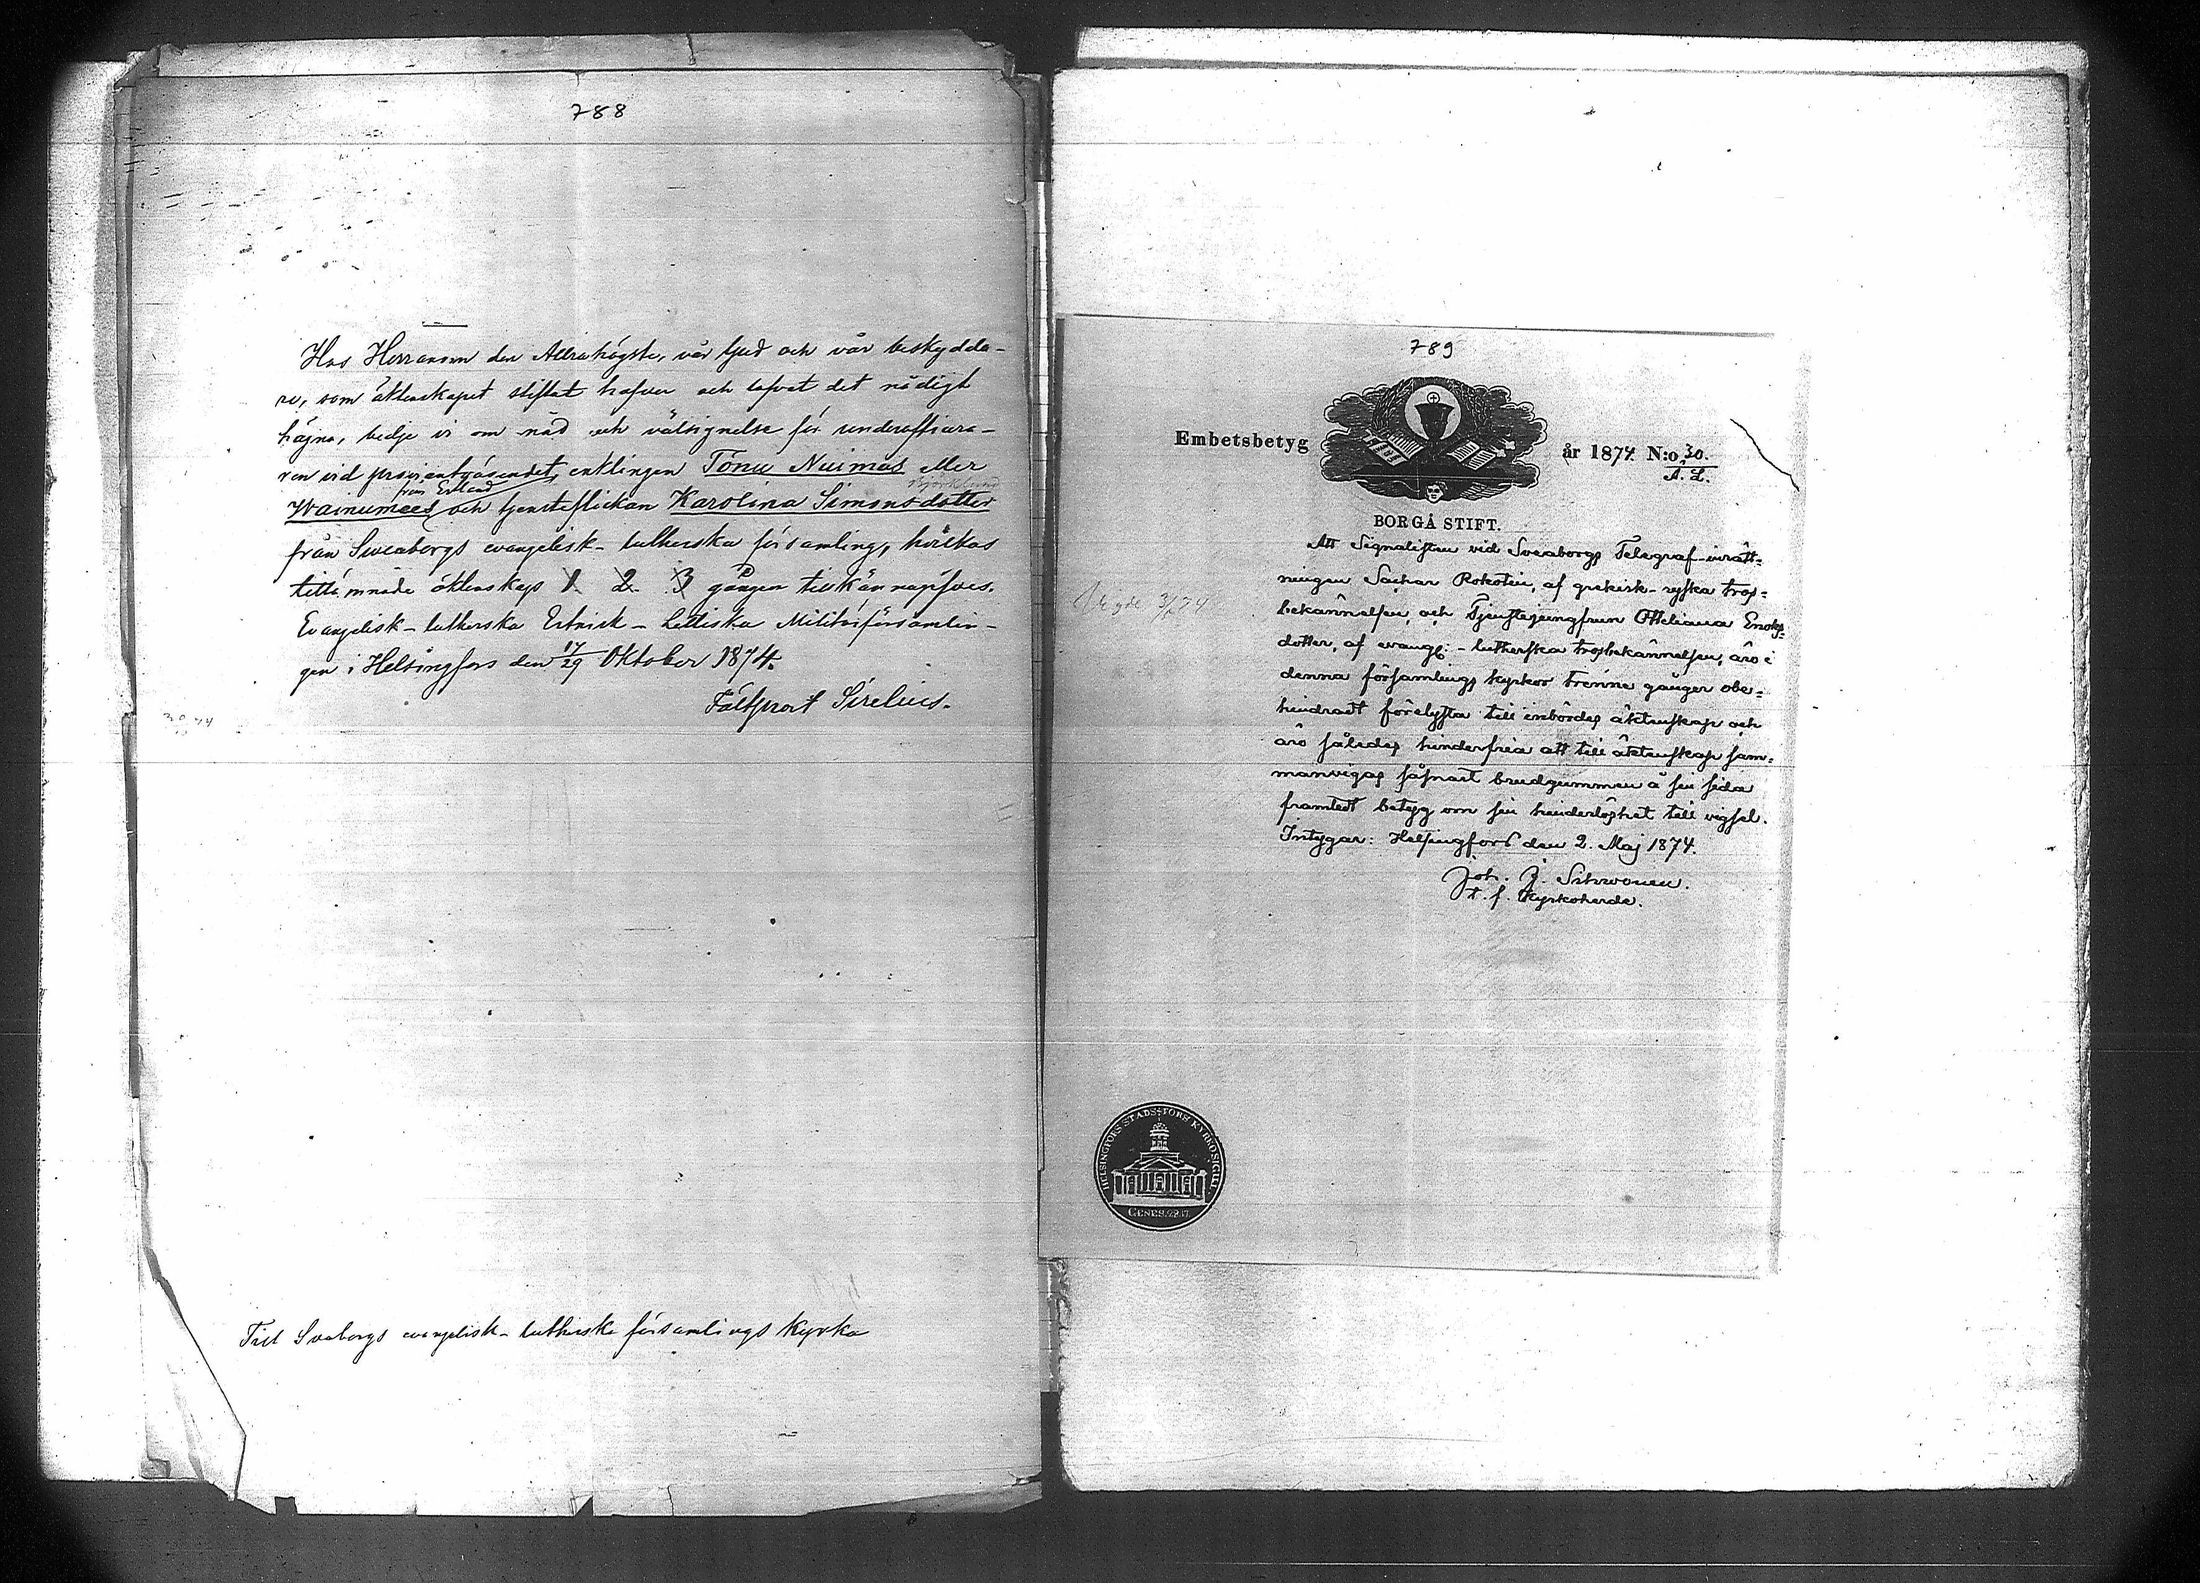 788
Hos Herranom den Allrahögste, vår Gud och vår beskydda-
re, som äktenskapet stiftat hafver och lofvat det nådigt
hägna, bedje vi om nåd och välsignelse för underofficera-
ren vid proviantväsendet, enklingen Tönu Nuimas eller
från Estland Björklund
Wainumees och tjensteflickan Karolina Simonsdotter
från Sweaborgs evangelisk-lutherska församling, hvilkas
tillämnade äktenskap 1 2 3 gången tillkännagifves.
Evangelisk-lutherska Estnisk-Lettiska Militärförsamlin-
gen i Helsingfors den 17/29 Oktober 1874.
Fältprost Sirelius.
Till Sveaborgs evangelisk-lutherska församlings kyrka
789
Embetsbetyg år 1874 N:o 30.
A. L.
BORGÅ STIFT.
Att Signalisten vid Sveaborgs Telegraf-inrätt-
ningen Sachar Rokotin, af grekisk-ryska tros-
bekännelsen, och Tjenstejungfrun Ottiliana Enoks-
dotter, af evang: -lutherska trosbekännelsen, äro i
denna församlings kyrkor trenne gånger obe-
hindradt förelysta till inbördes äktenskap och
äro således hinderfria att till äktenskap sam-
manvigas såsnart brudgummen å sin sida
framtedt betyg om sin hinderlöshet till vigsel.
Intygar: Helsingfors den 2. Maj 1874.
Joh. J. Sihvonen.
t. f. Kyrkoherde.
HELSINGFORS STADS-FÖRS: KYRKOSIGILL
GENES. 28. 17.